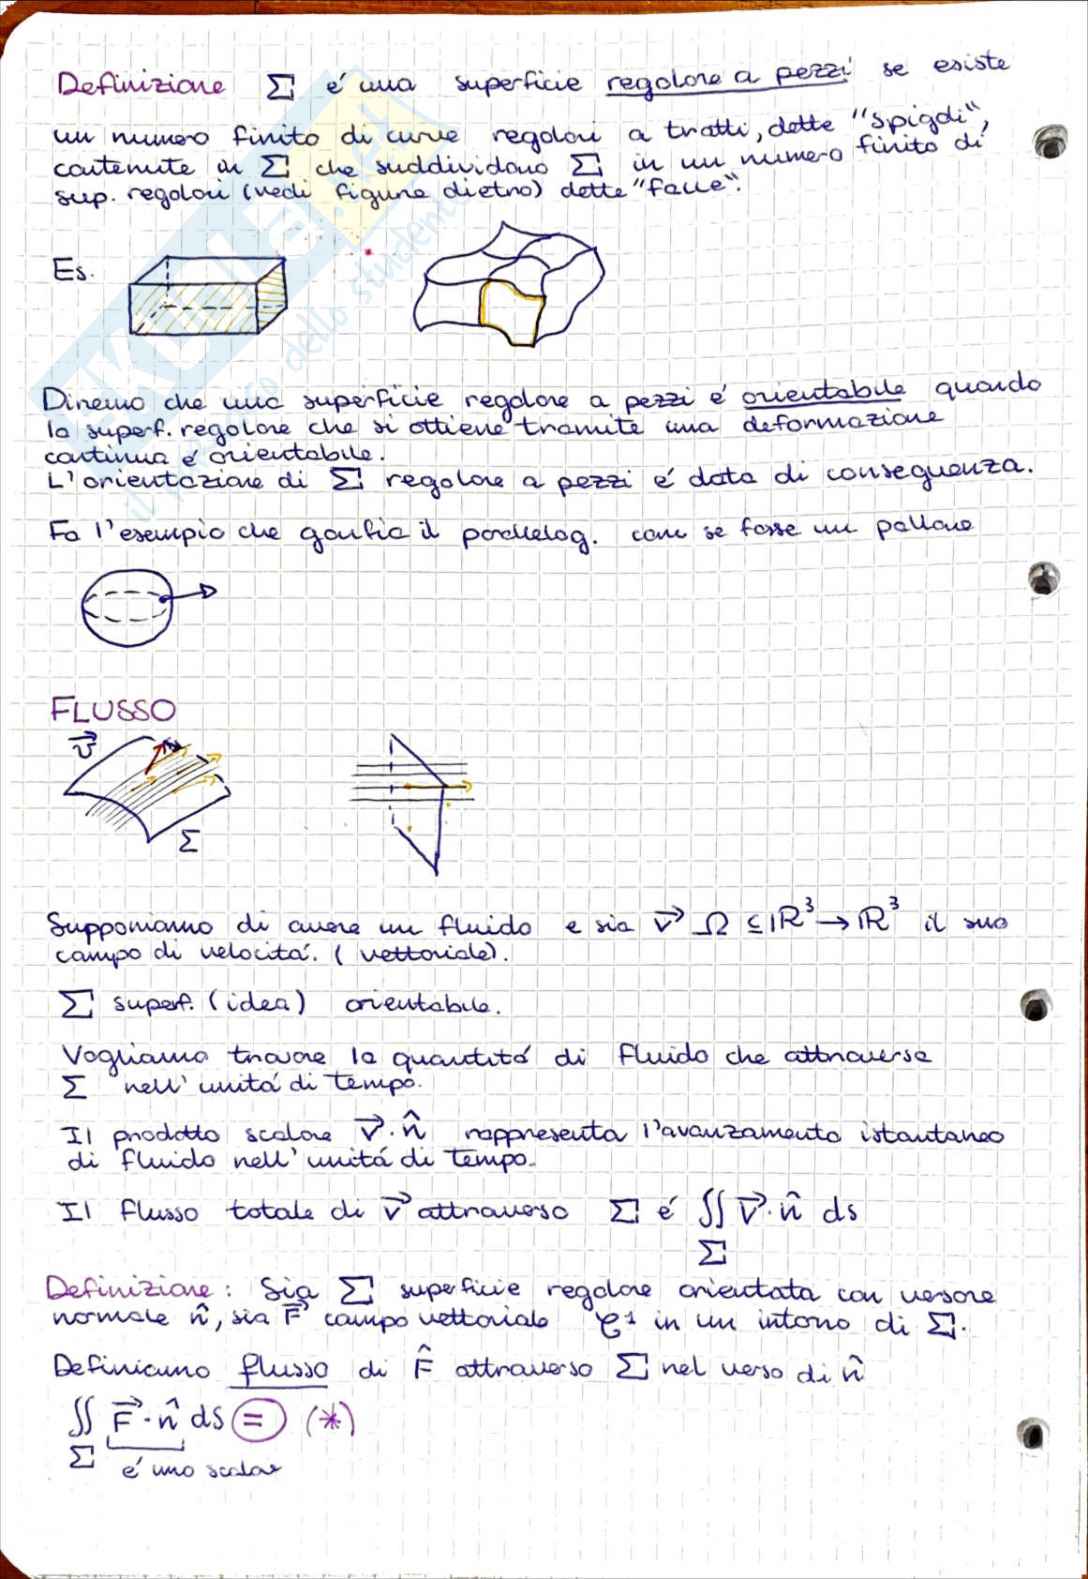 Definizione Σ é una superficie regolare a pezzi se esiste
un numero finito di curve regolari a tratti, dette "spigoli",
contenute in Σ che suddividono Σ in un numero finito di
sup. regolari (vedi figura dietro) dette "facce".
Es.
Diremo che una superficie regolare a pezzi é orientabile quando
la superf. regolare che si ottiene tramite una deformazione
continua é orientabile.
L'orientazione di Σ regolare a pezzi é data di conseguenza.
Fa l'esempio che gonfia il parallelog. come se fosse un pallone
FLUSSO
v⃗
Σ
Supponiamo di avere un fluido e sia v⃗ Ω ⊆ ℝ³ → ℝ³ il suo
campo di velocitá. (vettoriale).
Σ superf. (idea) orientabile.
Vogliamo trovare la quantitá di fluido che attraversa
Σ nell'unitá di tempo.
Il prodotto scalare v⃗ · n̂ rappresenta l'avanzamento istantaneo
di fluido nell'unitá di tempo.
Il flusso totale di v⃗ attraverso Σ é ∬ v⃗ · n̂ ds
Σ
Definizione: Sia Σ superficie regolare orientata con versore
normale n̂, sia F⃗ campo vettoriale 𝒞¹ in un intorno di Σ.
Definiamo flusso di F̂ attraverso Σ nel verso di n̂
∬ F⃗ · n̂ ds = (*)
Σ é uno scalare